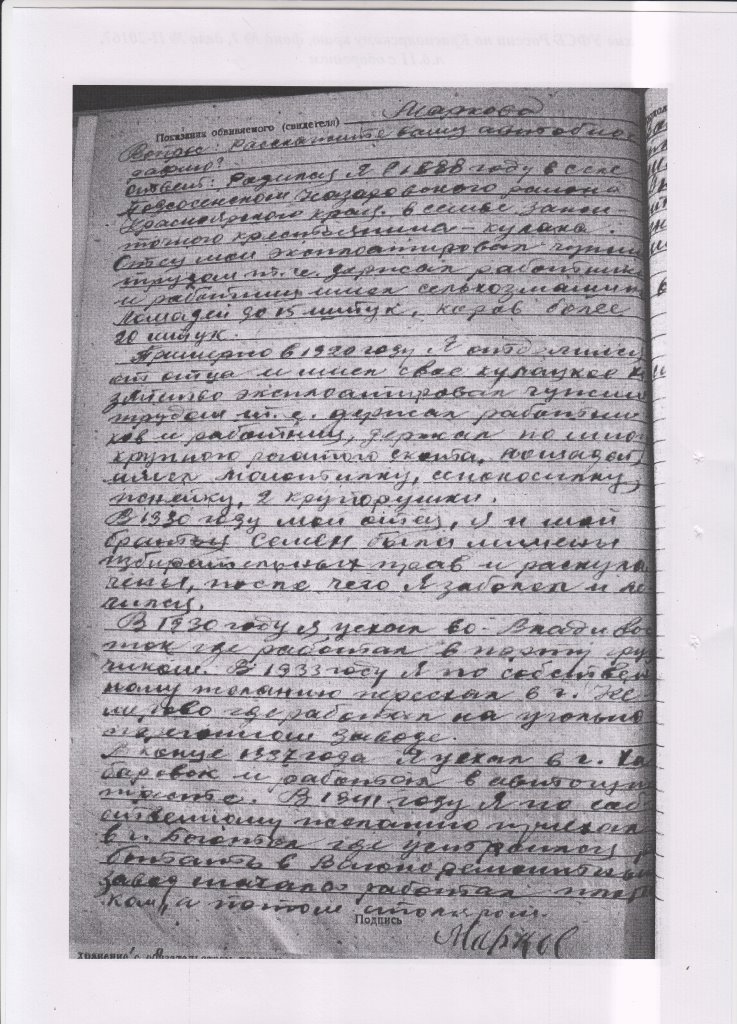 Показания обвиняемого (свидетеля) Маркова
Вопрос: Расскажите вашу автобиог
рафию?
Ответ: Родился Я в 1888 году в селе
Подсосенском Назаровского района
Красноярского края. в семье зажи-
точного крестьянина - кулака.
Отец мой эксплоатировал чужим
трудом т.е. держал работника
и работниц имел сельхозмашины
Лошадей до 15 штук, коров более
20 штук.
Примерно в 1920 году Я отделился
от отца и имел свое кулацкое х
зяйство эксплоатировал чужим
трудом т.е. держал работни-
ков и работниц, держал по много
крупного рогатого скота, лошадей
имел молотилку, сенокосилку,
2 крупорушки.
В 1930 году мой отец, Я и мой
брат Семен были лишены
избирательных прав и раскула
чены, после чего Я заболел и ле
чился.
В 1930 году Я уехал во-Владивос
ток где работал в порту гру
зчиком. В 1933 году Я по собствен
ному желанию переехал в г. Ке
мерово где работал на угольно
перегонном заводе.
В конце 1937 года Я уехал в г. Ха
баровск и работал в
тресте. В 1941 году Я по соб
ственному желанию приехал
в г. Боготол где устроился р
ботать в Вагоноремонтный
завод сначала работал
ком, а потом столяром.
Подпись
Марков
хранение с обязательством